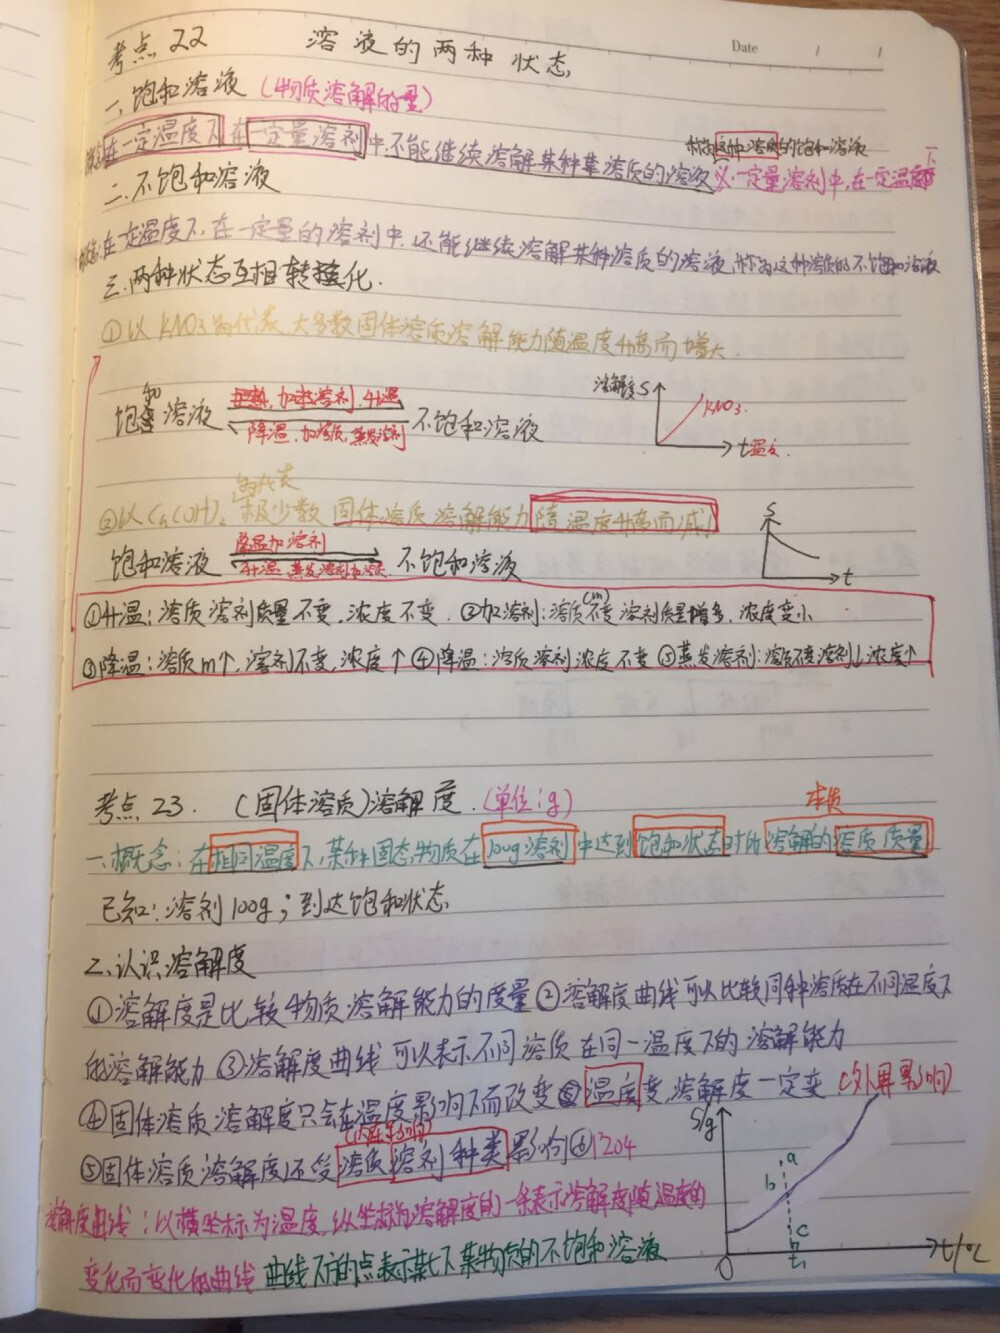 考点 22 溶液的两种状态
Date
一、饱和溶液 (物质溶解的量)
称为这种溶质的饱和溶液
概念:在一定温度下 在一定量溶剂中,不能继续溶解某种溶质的溶液 一定量溶剂中,在一定温度下
二、不饱和溶液
概念:在一定温度下,在一定量的溶剂中,还能继续溶解某种溶质的溶液,称为这种溶质的不饱和溶液
三、两种状态互相转化.
①以KNO3为代表,大多数固体溶质溶解能力随温度升高而增大.
溶解度S
KNO3.
t温度.
加溶剂,升温
饱和溶液 不饱和溶液
降温,加溶质,蒸发溶剂
为代表
②以Ca(OH)2 极少数 固体溶质溶解能力随温度升高而减小
S
t
降温加溶剂
饱和溶液 不饱和溶液
升温,蒸发溶剂加溶质
①升温:溶质溶剂质量不变,浓度不变. ②加溶剂:溶质(m)不变 溶剂质量增多,浓度变小
③降温:溶质m↑,溶剂不变,浓度↑ ④降温:溶质溶剂浓度不变 ⑤蒸发溶剂:溶质不变溶剂↓浓度↑
考点 23. (固体溶质)溶解度.(单位:g)
本质
一、概念:在相同温度下,某种固态物质在100g溶剂中达到饱和状态时所溶解的溶质质量
已知:溶剂100g;到达饱和状态
二、认识溶解度
①溶解度是比较物质溶解能力的度量②溶解度曲线可以比较同种溶质在不同温度下
的溶解能力 ③溶解度曲线 可以表示不同溶质在同一温度下的溶解能力
④固体溶质溶解度只会在温度影响下而改变 温度变,溶解度一定变 (外界影响)
⑤固体溶质溶解度还受溶质溶剂种类影响⑥1204
溶解度曲线:以横坐标为温度,纵坐标为溶解度的一条表示溶解度随温度的
变化而变化的曲线 曲线下方的点表示某物质的不饱和溶液
S/g
a
b
c
t1
O
t/℃